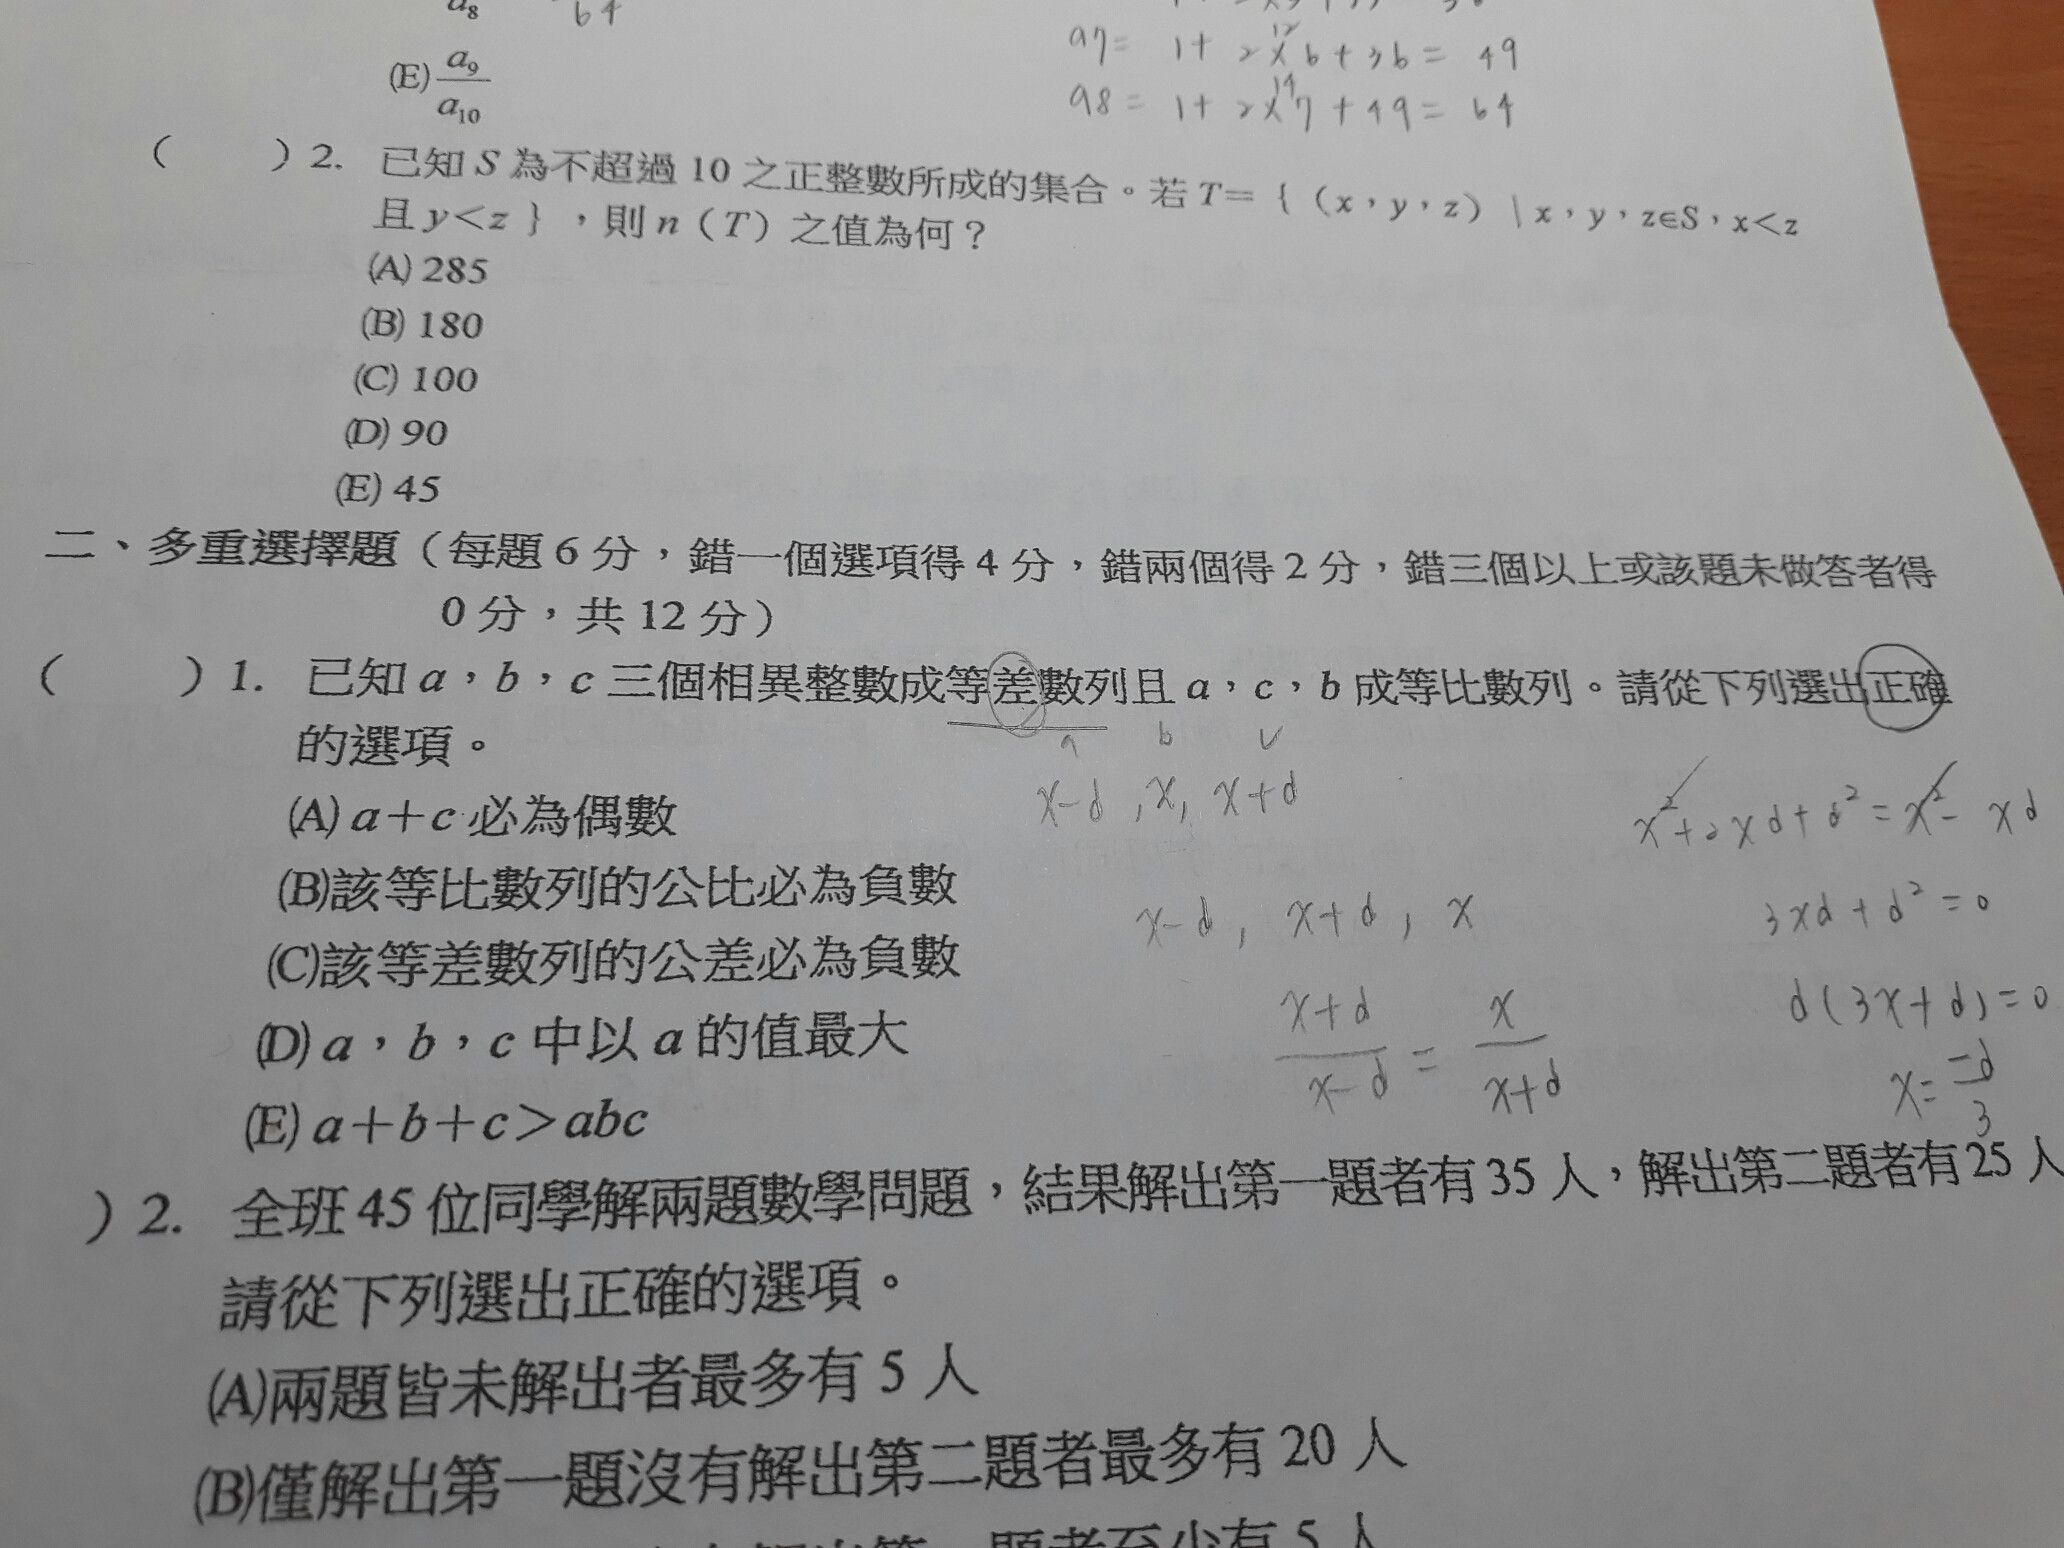 a₈ 64
(E) a₉/a₁₀
a7= 1+ 2×6+36= 49
12
a8= 1+ 2×7+49= 64
14
( )2. 已知 S 為不超過 10 之正整數所成的集合。若 T={(x,y,z)|x,y,z∈S,x<z
且 y<z},則 n(T)之值為何？
(A) 285
(B) 180
(C) 100
(D) 90
(E) 45
二、多重選擇題（每題 6 分，錯一個選項得 4 分，錯兩個得 2 分，錯三個以上或該題未做答者得
0 分，共 12 分）
( )1. 已知 a，b，c 三個相異整數成等差數列且 a，c，b 成等比數列。請從下列選出正確
的選項。
a b c
x-d , x, x+d
(A) a+c 必為偶數
x²+2xd+d²=x²- xd
(B)該等比數列的公比必為負數
x-d, x+d, x
3xd+d²=0
(C)該等差數列的公差必為負數
(x+d)/(x-d) = x/(x+d)
d(3x+d)=0
(D) a，b，c 中以 a 的值最大
x= -d/3
(E) a+b+c>abc
)2. 全班 45 位同學解兩題數學問題，結果解出第一題者有 35 人，解出第二題者有 25 人
請從下列選出正確的選項。
(A)兩題皆未解出者最多有 5 人
(B)僅解出第一題沒有解出第二題者最多有 20 人
題者至少有 5 人